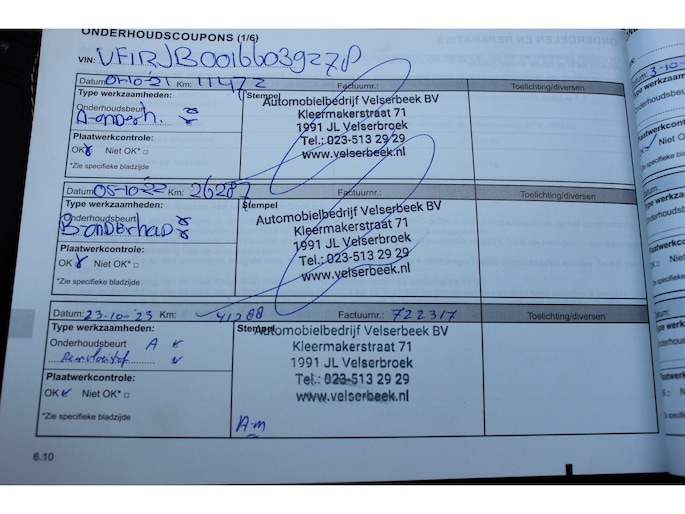 ONDERHOUDSCOUPONS (1/6)
VIN: VF1RJB00166039278
Datum: 01-10-'21 Km: 11472 Factuurnr.: Toelichting/diversen
Type werkzaamheden: Stempel
Automobielbedrijf Velserbeek BV
Onderhoudsbeurt Kleermakerstraat 71
A-onderh. 1991 JL Velserbroek
Plaatwerkcontrole: Tel.: 023-513 29 29
OK Niet OK* www.velserbeek.nl
*Zie specifieke bladzijde
Datum: 05-10-'22 Km: 26287 Factuurnr.: Toelichting/diversen
Type werkzaamheden: Stempel
Automobielbedrijf Velserbeek BV
Onderhoudsbeurt Kleermakerstraat 71
B-onderhoud 1991 JL Velserbroek
Plaatwerkcontrole: Tel.: 023-513 29 29
OK Niet OK* www.velserbeek.nl
*Zie specifieke bladzijde
Datum: 23-10-'23 Km: 41288 Factuurnr.: 722317 Toelichting/diversen
Type werkzaamheden: Stempel
Automobielbedrijf Velserbeek BV
Onderhoudsbeurt A Kleermakerstraat 71
Remvloeistof 1991 JL Velserbroek
Plaatwerkcontrole: Tel.: 023-513 29 29
OK Niet OK* www.velserbeek.nl
*Zie specifieke bladzijde
6.10